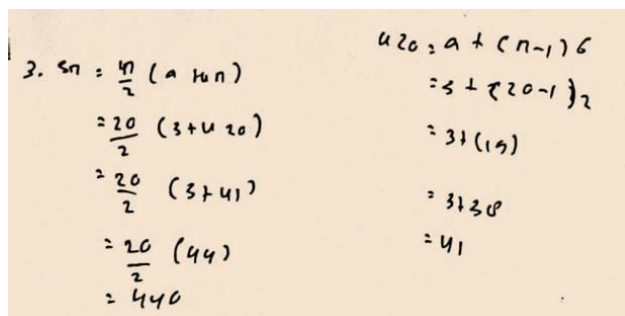 3. Sn = n/2 (a + un)
= 20/2 (3+u 20)
= 20/2 (3+41)
= 20/2 (44)
= 440
u20 = a + (n-1) b
= 3 + (20-1) 2
= 3+(19)
= 3+38
= 41